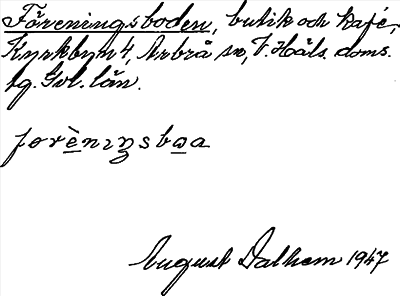 Föreningsboden, butik och kafé,
Kyrkbyn 4, Arbrå sn, V. Häls. doms.
sg. Gvl. län.
förènıŋsbɷa
August Dalhem 1947